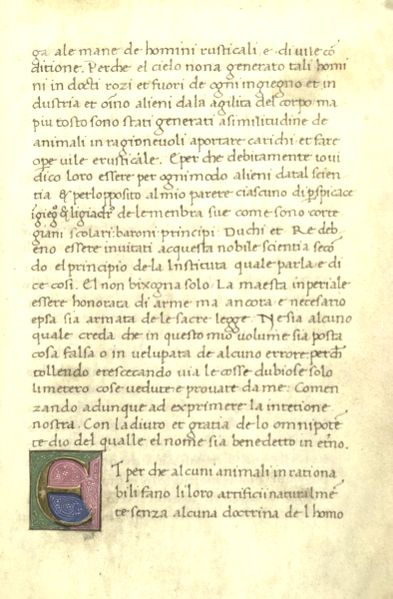 ga ale mane de homini rusticali e di vile cō
ditione. Perche el cielo non a generato tali homi
ni in docti rozi et fuori de ogni ingiegno et in
dustria et oĩno alieni dala agilita del corpo ma
piu tosto sono stati generati a similitudine de
animali in ragionevoli aportare carichi et fare
opere vile e rusticale. E per che debitamente io vi
dico loro essere per ogni modo alieni da tal scien
tia & per lopposito al mio parere ciascuno di pspicace
īgieg̃o & ligiadro de le membra sue come sono corte
giani scolari baroni principi Duchi et Re deb
eno essere invitati acquesta nobile scientia secō
do el principio de la Instituta quale parla e di
ce cosi. El non bixogna solo La maesta inperiale
essere honorata di arme ma ancora e necesario
epsa sia armata de le sacre legge. Ne sia alcuno
quale creda che in questo mio volume sia posta
cosa falsa o in velupata de alcuno errore perch̄
tollendo e rescecando via le cosse dubiose solo
li metero cose vedute e provate da me: Comen
zando adunque ad exprimere la intētione
nostra. Con ladiuto et gratia de lo omnipotē
te dio del qualle el nome sia benedetto in etr̃no.
ET per che alcuni animali in rationa
bili fano li loro artificii naturalmē
te senza alcuna doctrina de l homo